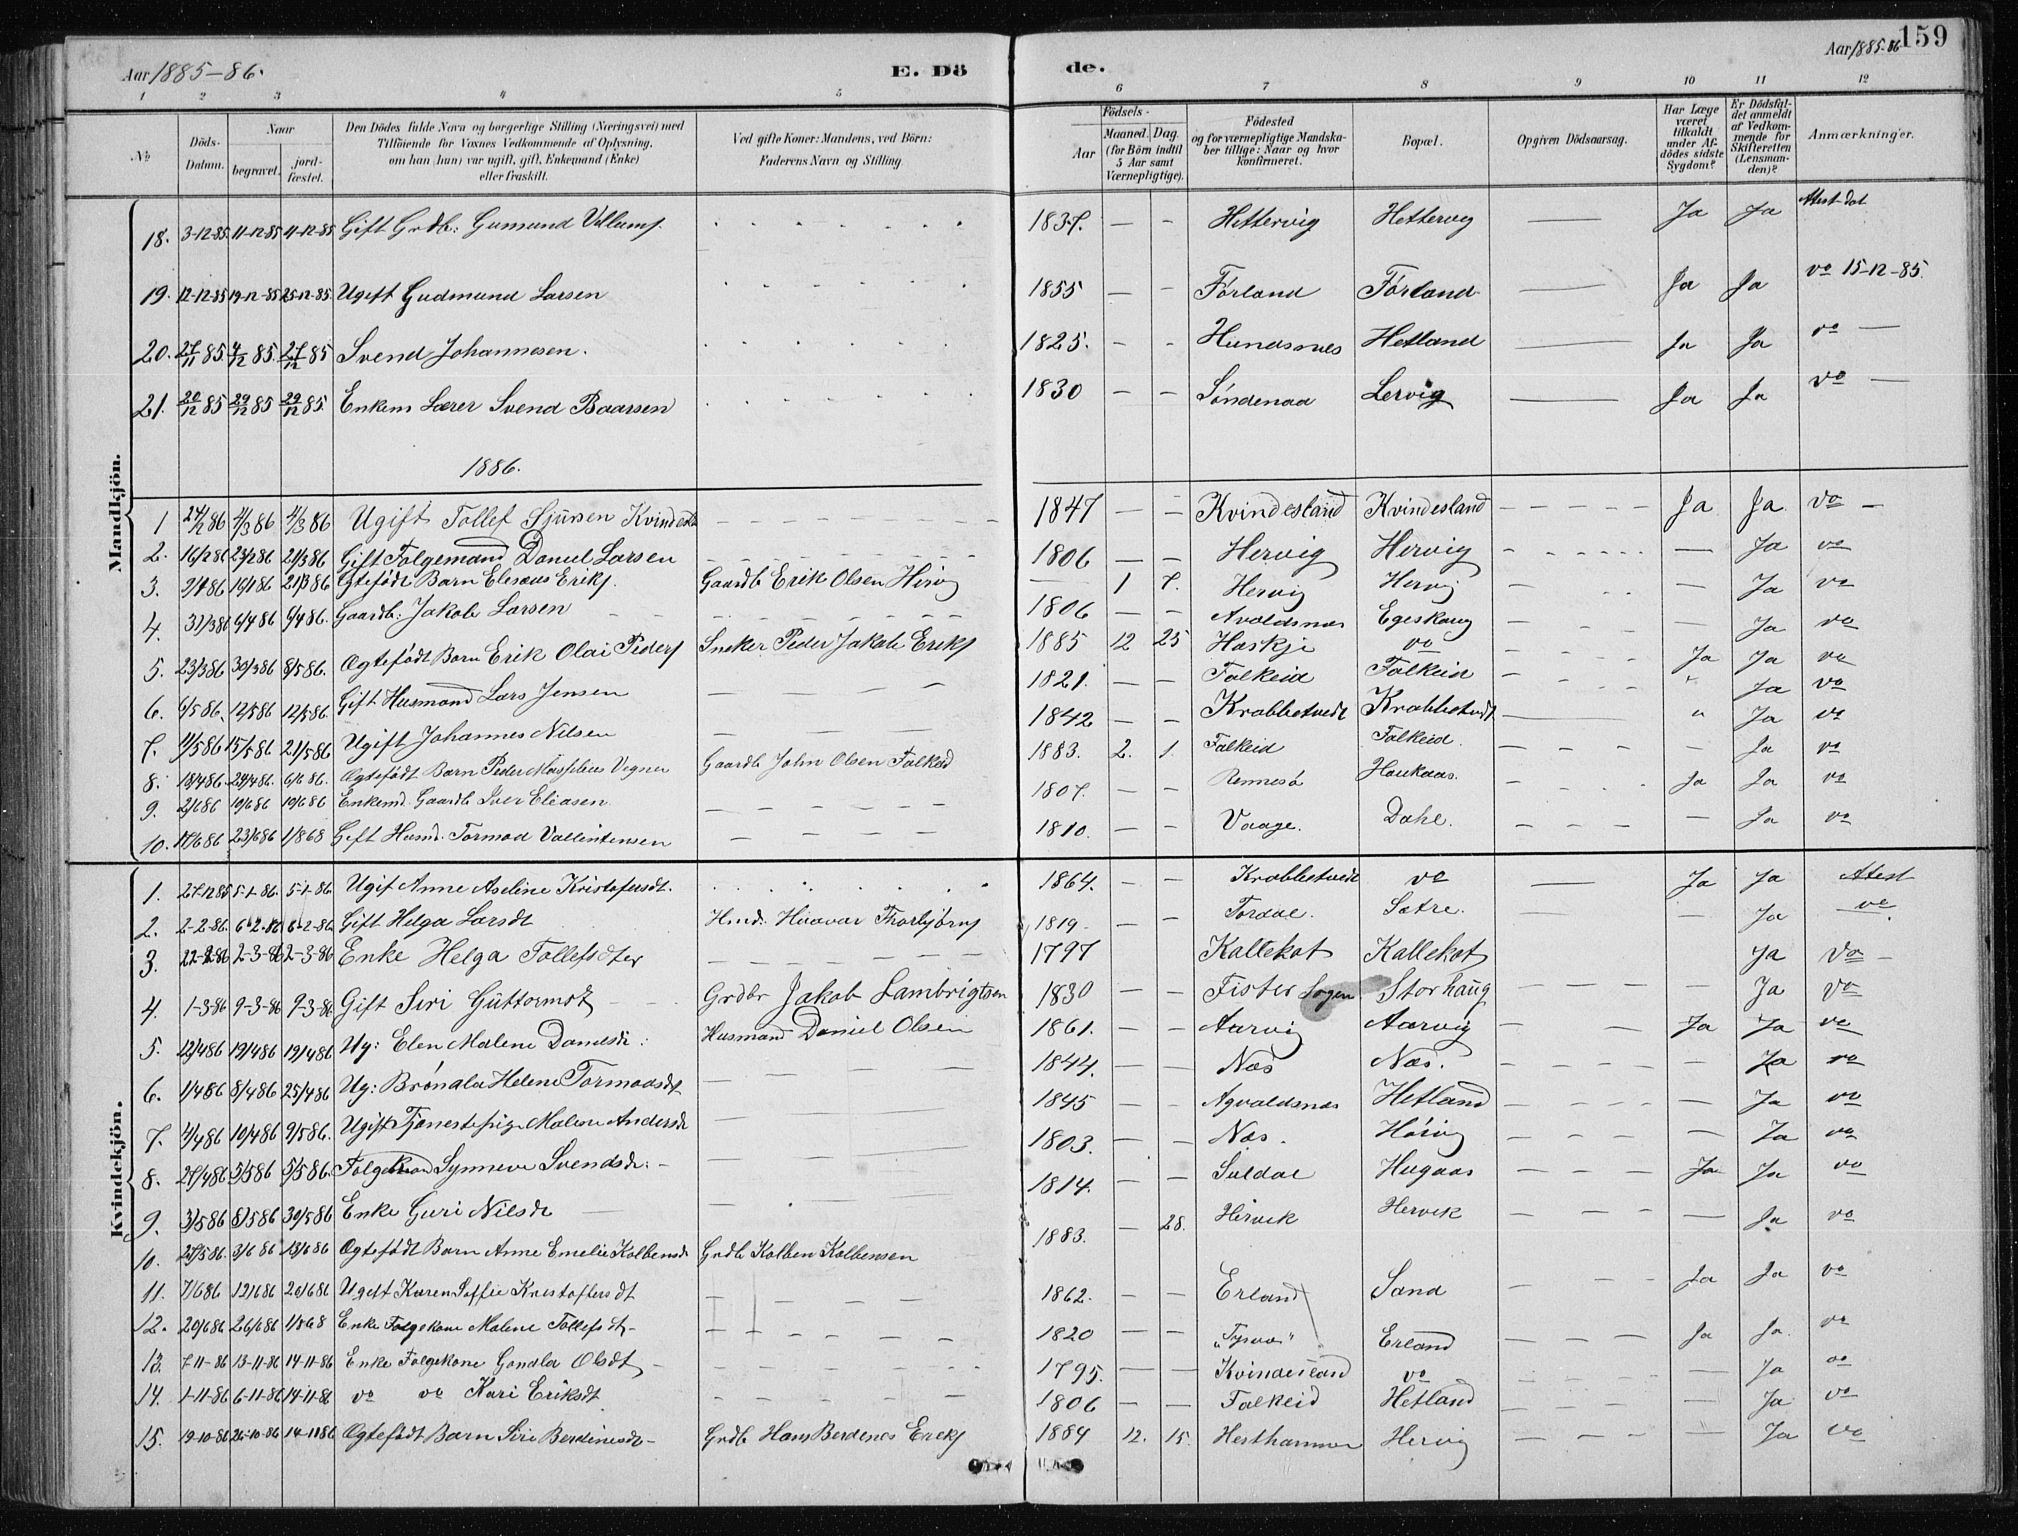 Aar 1885-86.
E. Dö
de.
Aar 1885-86
159
1 2 3 4 5 6 7 8 9 10 11 12
No
Döds-Datum.
Naar
begravet.
jord-fæstet.
Den Dödes fulde Navn og borgerlige Stilling (Næringsvei) med
Tilföiende for Voxnes Vedkommende af Oplysning,
om han (hun) var ugift, gift, Enkemand (Enke)
eller fraskilt.
Ved gifte Koner: Mandens, ved Börn:
Faderens Navn og Stilling.
Födsels-
Aar
Maaned. Dag.
(for Börn indtil
5 Aar samt
Værnepligtige).
Födested
og for værnepligtige Mandska-
ber tillige: Naar og hvor
konfirmeret.
Bopæl.
Opgiven Dödsaarsag.
Har Læge
været
tilkaldt
under Af-
dödes sidste
Sygdom?
Er Dödsfal-
det anmeldt
af Vedkom-
mende for
Skifteretten
(Lensman-
den)?
Anmærkninger.
Mandkjön.
18. 3-12-85 11-12-85 11-12-85 Gift Grdb: Gumund Villums. 1837. — — Hettervig Hettervig — Ja Ja Attest dat
19. 12-12-85 19-12-85 25-12-85 Ugift Gudmund Larsen 1855 — — Førland Førland — Ja Ja vo 15-12-85.
20. 27/11 85. 4/12 85. 27/12 85 Svend Johannesen. 1825. — — Hundsnes Hetland — Ja Ja vo —
21. 20/12 85 29/12 85 29/12 85. Enkem Lærer Svend Baarsen 1830 — — Søndenaa Lervig — Ja Ja vo —
1886.
1 24/2 86 4/3 86 4/3 86 Ugift Tollef Sjursen 1847 — — Kvindesland Kvindesland Ja Ja vo —
2. 16/2 86 23/2 86 21/3 86 Gift Folgemand Daniel Larsen 1806 — — Hervig Hervig — Ja vo
3. 10/4 86 21/3 86 Ogtefødt Barn Eliseus Eriks. Gaardb Erik Olsen — 1 7. Hervig Hervig — Ja vo
4. 31/3 86 6/4 86 9/4 86. Gaardb: Jakob Larsen 1806 — — Avaldsnes Egeskaug — Ja vo
5. 23/3 86 30/3 86 8/5 86. Ogtefødt Barn Erik Olai Peders Sneker Peder Jakob Eriks 1885 12 25 Haskje vo Ja Ja vo
6. 6/5 86. 12/5 86 12/5 86. Gift Husmand Lars Jensen 1821. — — Falkeid Falkeid " Ja vo
7. 11/5 86 15/5 86 21/5 86 Ugift Johannes Nilsen 1842 — — Krabbetvedt Krabbetvedt — " Ja vo
8. 18/4 86. 24/4 86. 6/6 86. Ogtefødt Barn Peder Vegner Gaardb John Olsen Falkeid 1883. 2. 1. Falkeid Falkeid. — Ja vo
9. 2/6 86 10/6 86 10/6 86 Enkemd. Gaardb Iver Eliasen 1807. — — Rennesø Haukaas. Ja Ja vo
10. 17/6 86 23/6 86 1/8 68 Gift Husmd. Tormod Vallentensen 1810. — — Vaage. Dahl. — Ja vo
Kvindekjön.
1. 27-12-85 5-1-86. 5-1-86. Ugif Anne Aseline Kristofersdt. 1864. — — Krabbetvedt vo — Ja Ja Attest
2. 2-2-86. 6-2-86 6-2-86. Gift Helga Larsdt Thorbjørns 1819. — — Tordal. Sætre. — Ja vo.
3. 22-2-86 2-3-86 2-3-86 Enke Helga Tollefsdter 1797 — — Kallekot Kallekot Ja vo —
4. 1-3-86 9-3-86 9-3-86 Gift Siri Guttormsdt Grdbr Jakob Lambrigtsen 1830 — — Fister Sogn Storhaug Ja vo
5. 12/4 86 19/4 86 19/4 86 Ug: Elen Malene Danielsdt: Husmand Daniel Olsen 1861. — — Aarvig Aarvig — Ja Ja vo
6. 1/4 86 8/4 86 25/4 86 Ug: Brøndla Helene Tormodsdt 1844. — — Næs Næs. — Ja vo
7. 4/4 86 10/4 86 9/5 86. Ugift Tjenestepige Malene Andersdt 1845 — — Agvaldsnes Hetland — Ja vo
8. 27/4 86 5/5 86 5/5 86. Folgekone Synneve Svendsdt. — 1803. — — Næs. — Ja vo
9. 3/5 86 8/5 86 30/5 86 Enke Guri Nilsdt 1814. — — Suldal Hugaas Ja Ja vo
10. 27/5 86. 3/6 86 13/6 86 Ogtefødt Barn Anne Emelie Kolbensdt Grdb Kolben Kolbensen 1883. — 28. Hervik Hervik — Ja vo
11. 7/6 86 12/6 86 20/6 86 Ugift Karen Soffie Kristoffersdt 1862. — — Erland Sand — Ja Ja vo
12. 20/6 86 26/6 86 1/8 68 Enke Folgekone Malene Tollefsdt — 1820 — — "Tysvær" Erland Ja Ja. vo
13. 7-11-86 13-11-86 14-11-86 Enke Folgekone Gondla Olsdt 1795. — — Kvindesland vo Ja vo
14. 1-11-86 6-11-86 14-11-86 vo vo Kari Eriksdt 1806 — — Falkeid Hetland — Ja vo
15. 19-10-86 26-10-86 14-11 86 Ogtefødt Barn Siri Berdinesdt — Grdb Hans Berdenes Eriks 1884 12. 15. Hesthammer Hervig — Ja vo